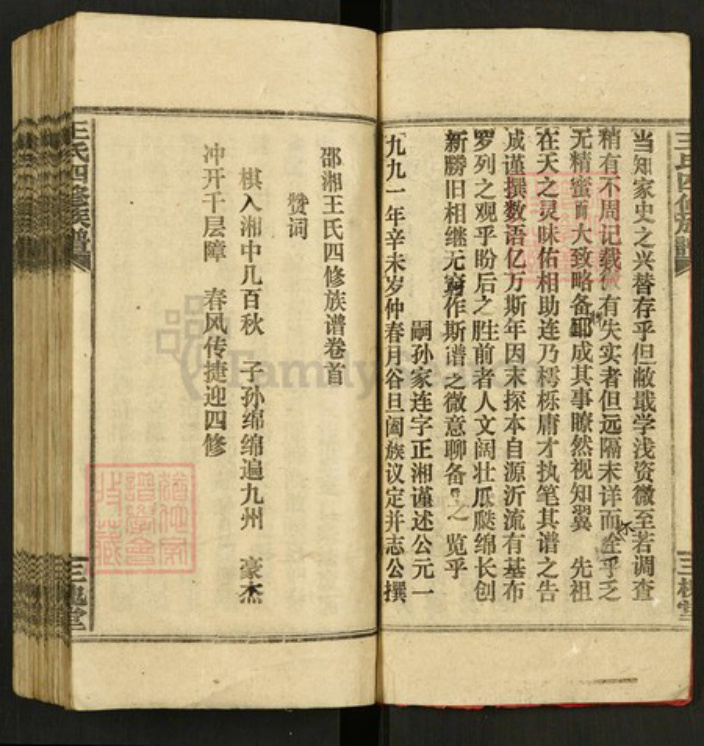 当知家史之兴替存乎但敝戢学浅资微至若调查
稍有不周记载 有失实者但远隔未详而全乎乏
无精蜜而大致略备 成其事瞭然视知翼 先祖
在天之灵昧佑相助连乃樗栎庸才执笔其谱之告
成谨撰数语亿万斯年因末探本自源沂流有基布
罗列之观乎盼后之胜前者人文阔壮瓜瓞绵长创
新勝旧相继无穷作斯谱之微意聊备 之一览乎
嗣孙家连字正湘谨述公元一
九九一年辛未岁仲春月谷旦阖族议定并志公撰
三槐堂
邵湘王氏四修族谱卷首
赞词
棋入湘中几百秋 子孙绵绵遍九州 豪杰
冲开千层障 春风传捷迎四修
王氏四修族谱
三槐堂